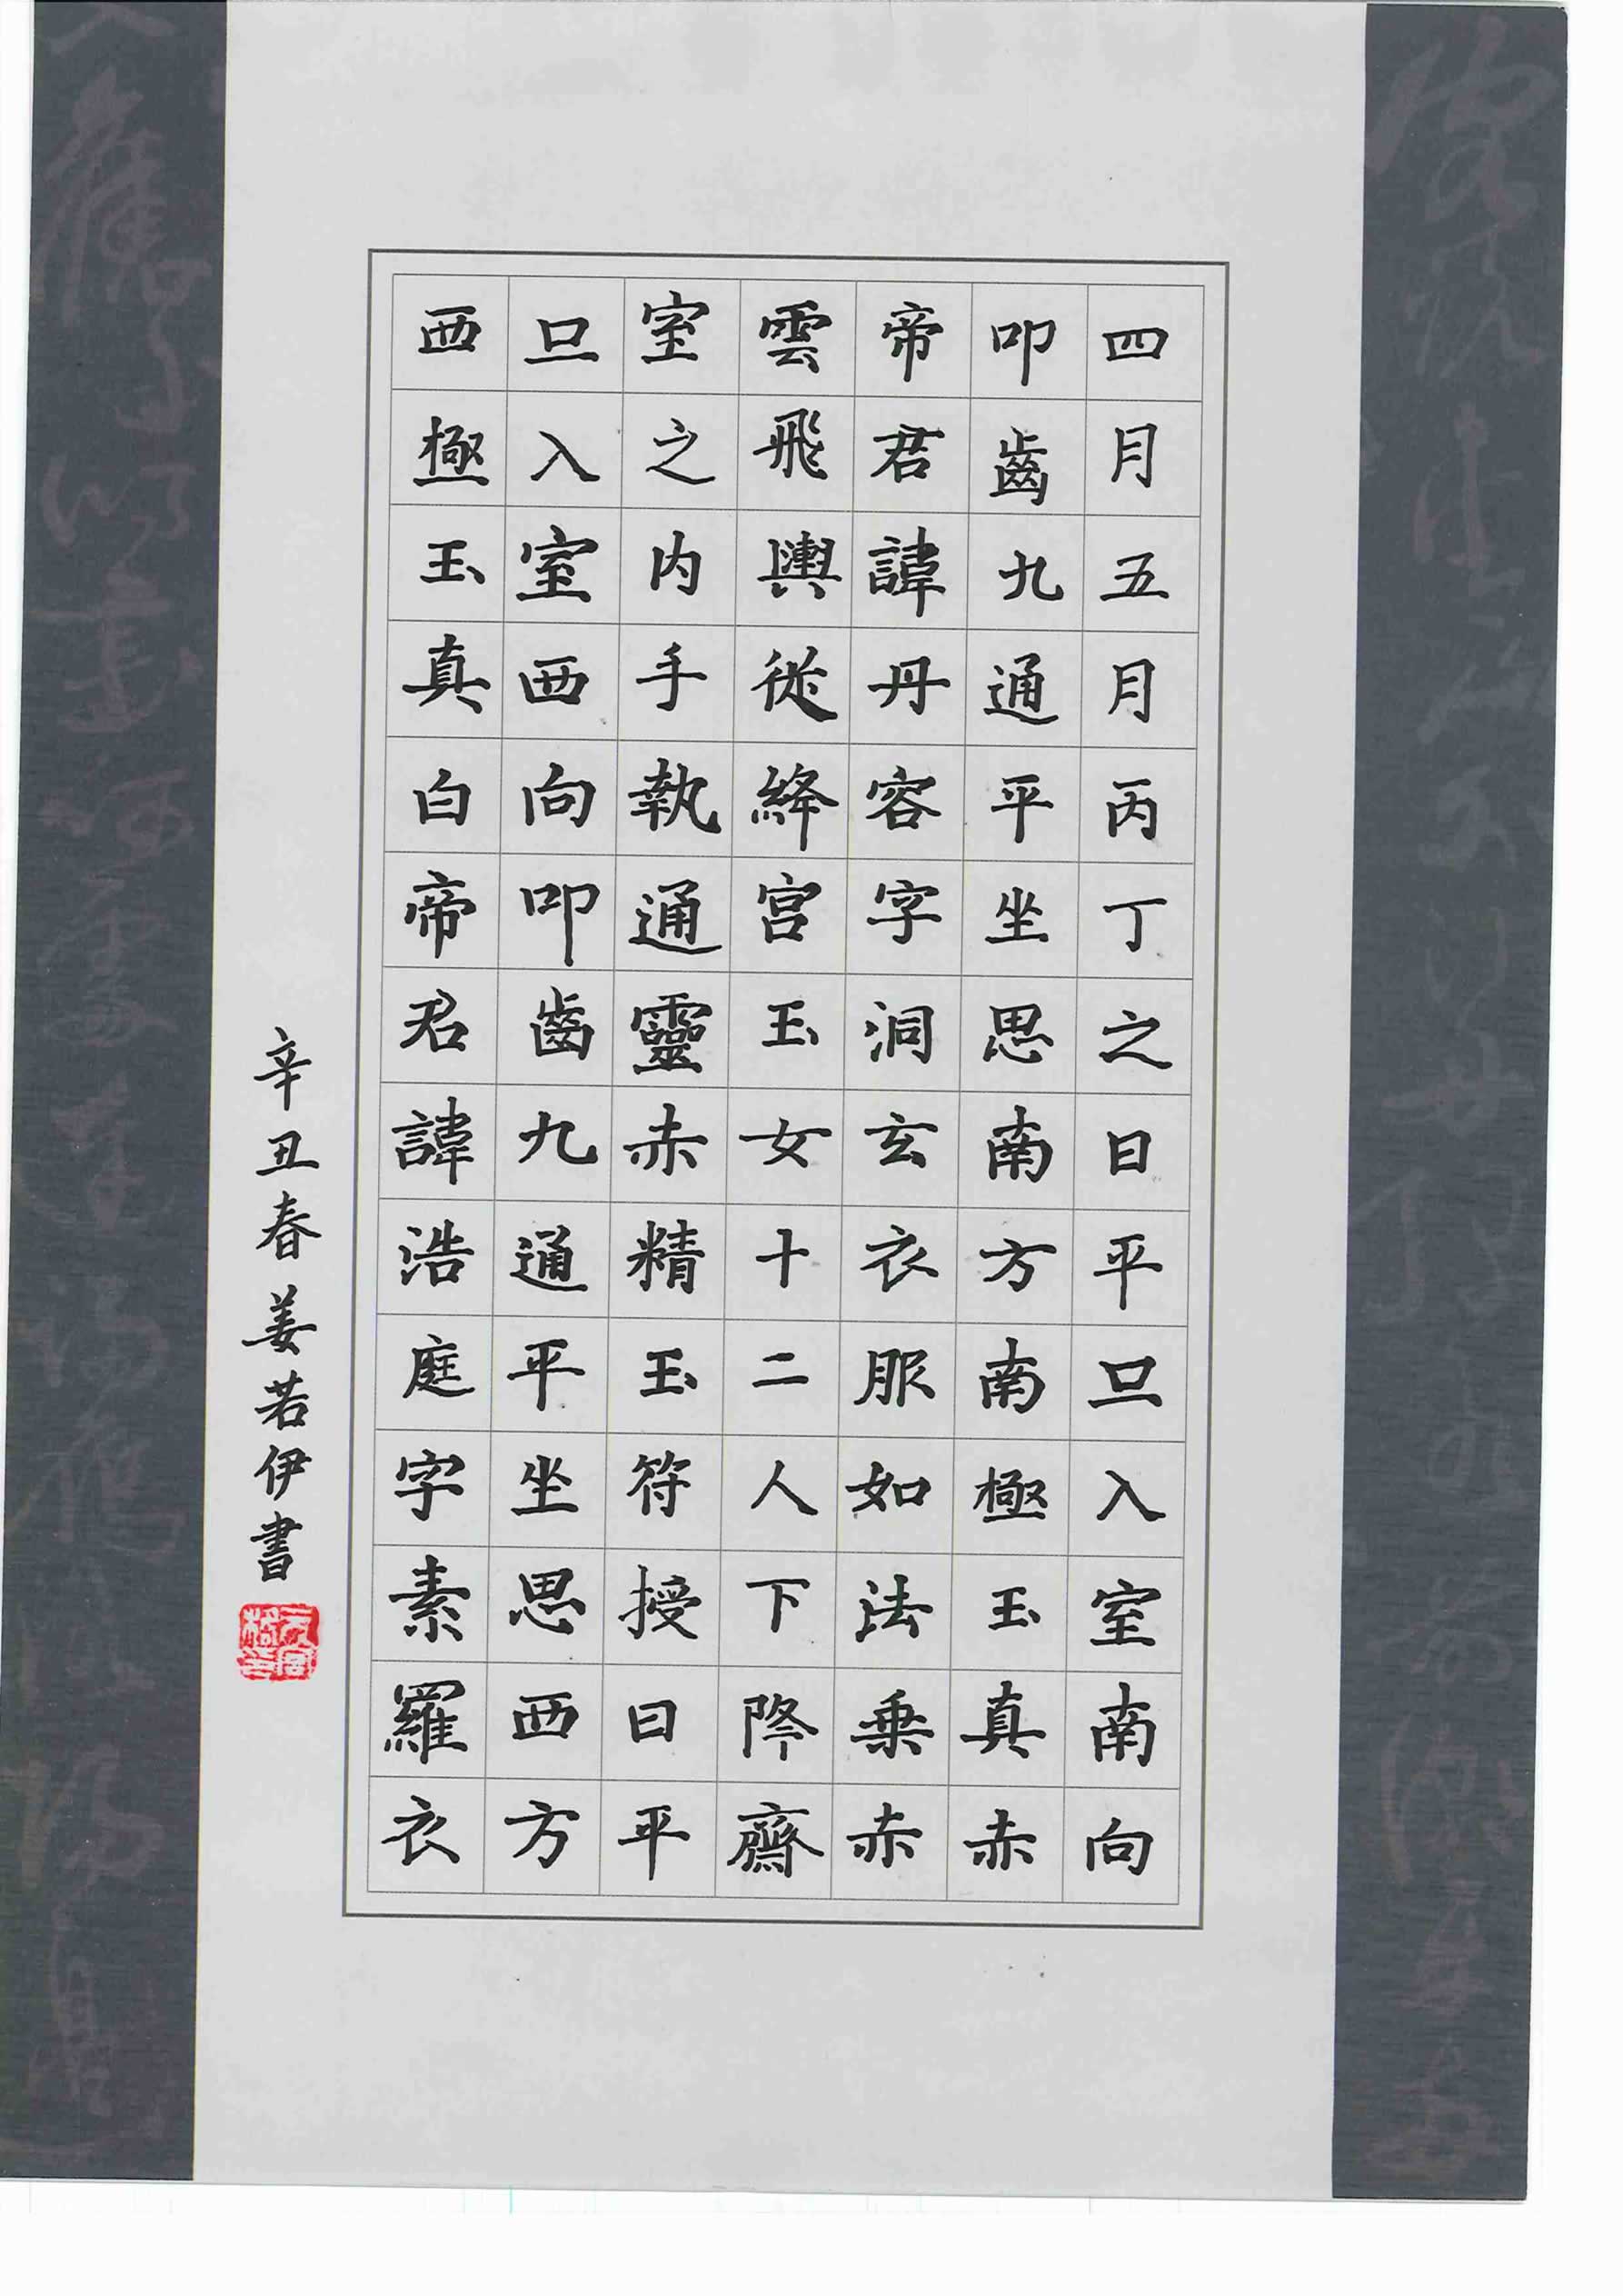 四月五月丙丁之日平旦入室南向
叩齒九通平坐思南方南極玉真赤
帝君諱丹容字洞玄衣服如法乗赤
雲飛輿從絳宫玉女十二人下降齋
室之内手執通靈赤精玉符授曰平
旦入室西向叩齒九通平坐思西方
西極玉真白帝君諱浩庭字素羅衣
辛丑春姜若伊書